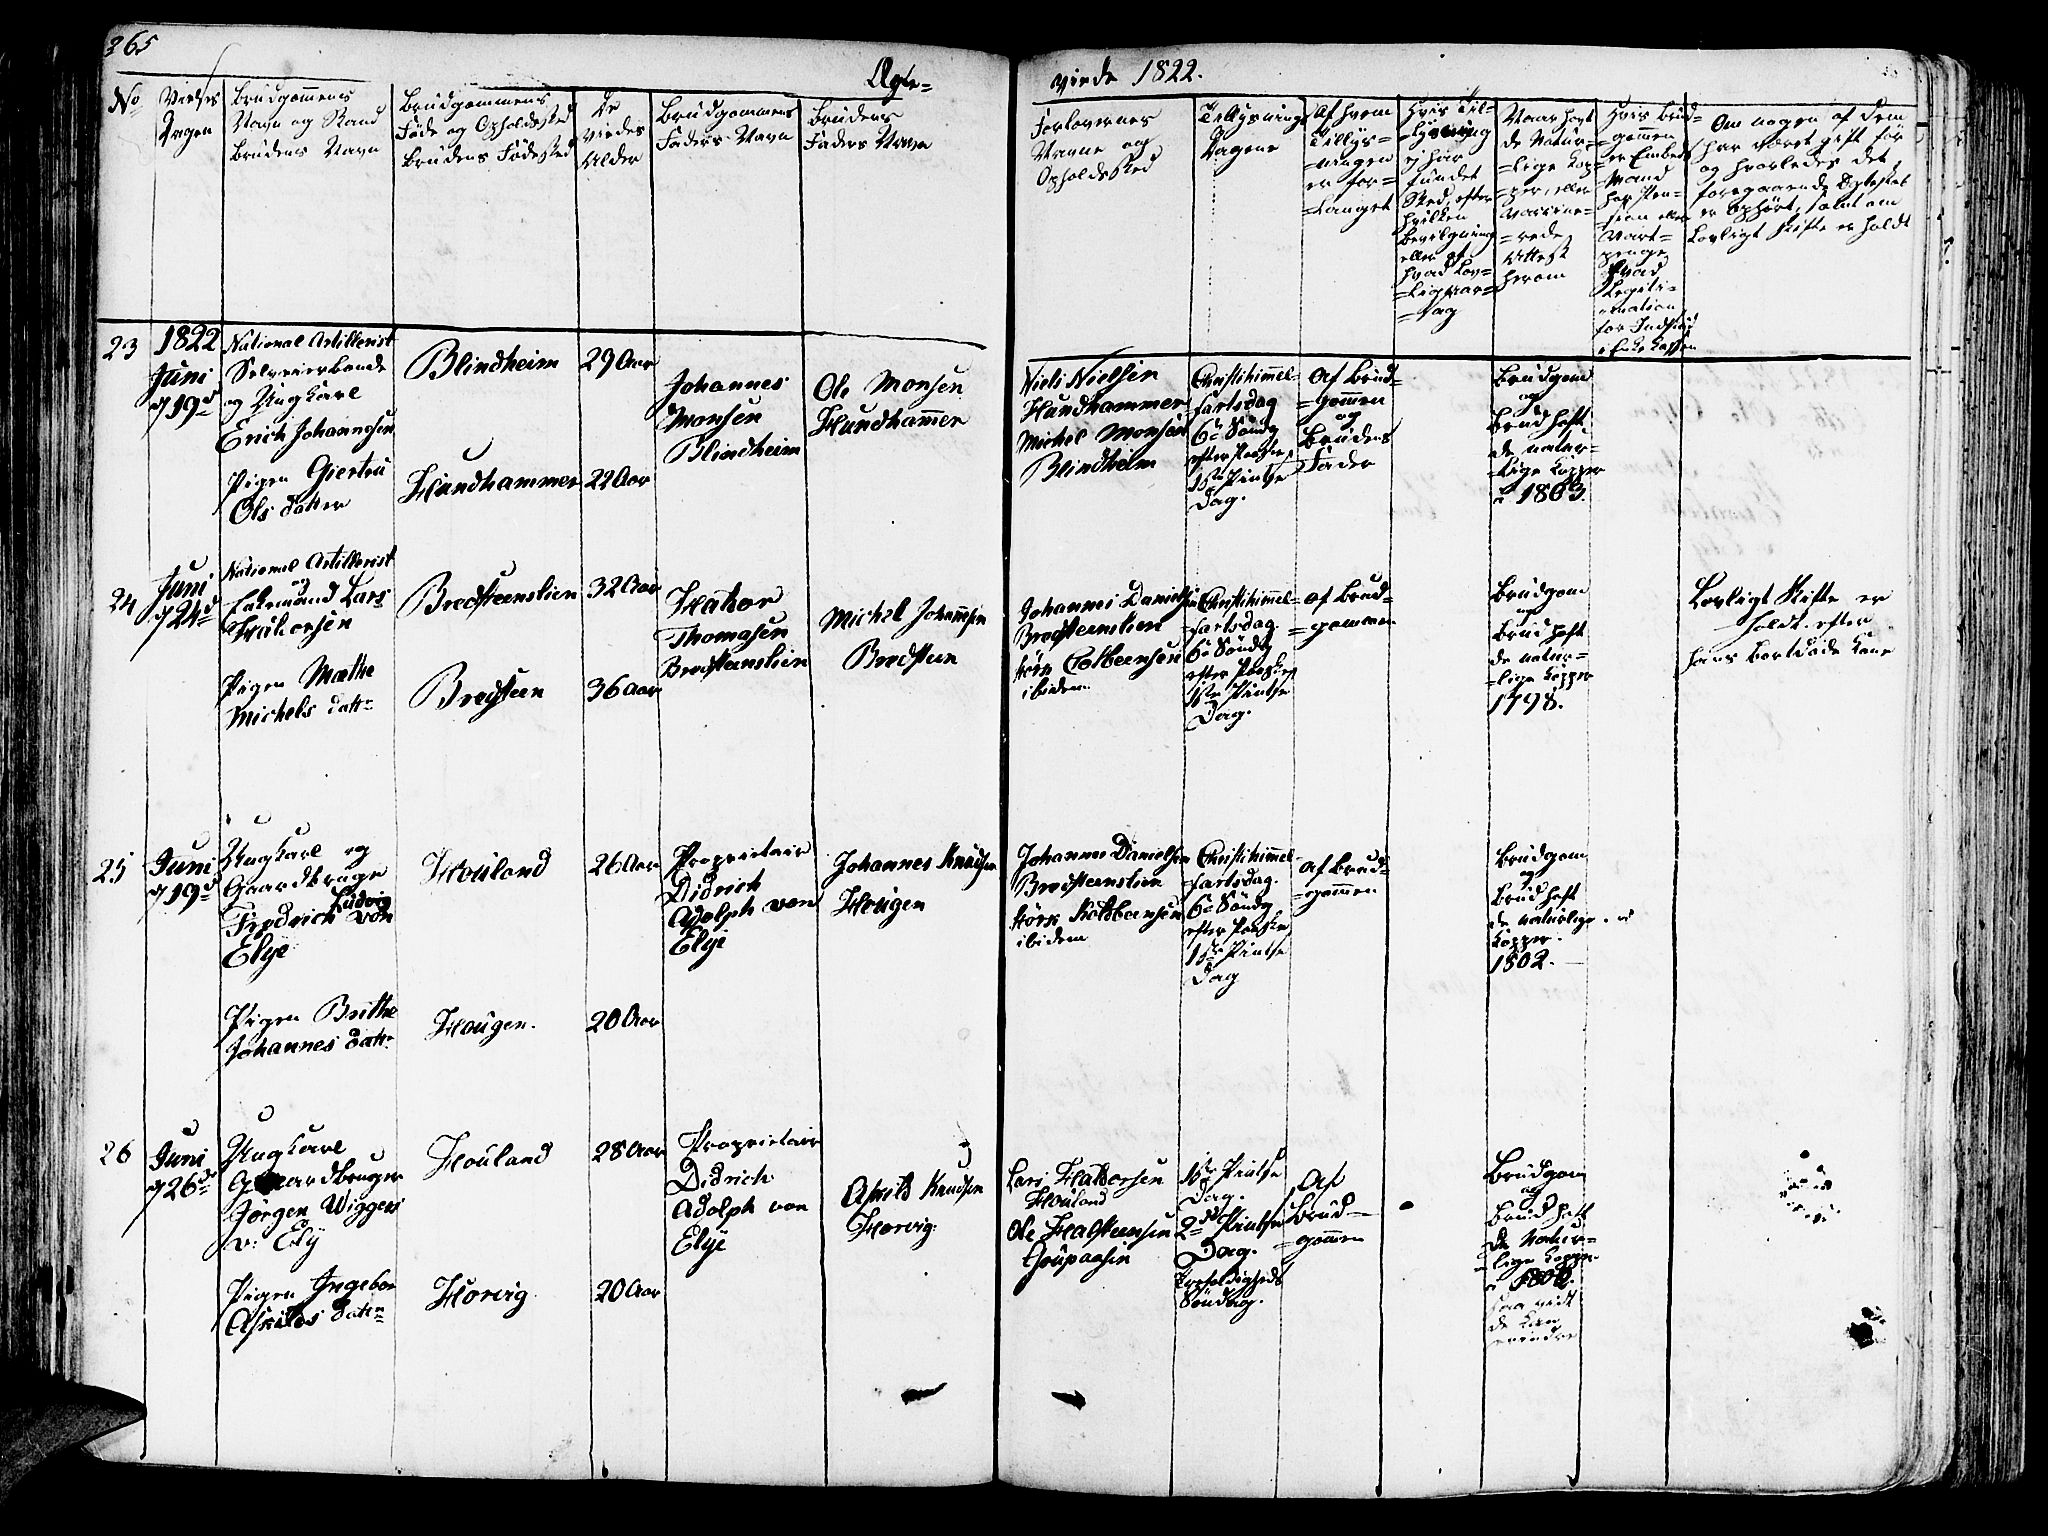 365
Ægte=
viede 1822.
No
Vielses
Dagen
Brudgommens
Navn og Stand
Brudens Navn
Brudgommens
Føde og Opholdssted
Brudens Fødested
De
viedes
Alder
Brudgommens
Faders Navn
Brudens
Faders Navn
Forlovernes
Navne og
Opholdssted
Tillysnings
Dagene
Af hvem
Tillys-
ningen
er for=
=langet
Hvis Til=
=lysning
ej har
fundet
Sted, efter
hvilken
Bevilgning
eller af
hvad Lov=
=lig Aar=
=sag
Naar havt
de Natur=
=lige Kop=
=per, eller
Vaccine=
=rede
Attest
herom
Hvis Brud=
=gommen
er Embeds
Mand
hvad
Legiti=
=mation
for Indskud
i Enke Kassen
Om nogen af dem
har været gift før
og hvorledes det
foregaaende Ægteskab
er Ophørt, samt om
Lovligt Skifte er holdt
23
1822
Juni
19d
National Artillerist
Selveierbonde
og Ungkarl
Erich Johannesen
Pigen Giertru
Ols datter
Blindheim
Hundhammer
29 Aar
22 Aar
Johannes
Monsen
Blindheim
Ole Monsen
Hundhammer
Niels Nielsen
Hundhammer
Michel Monsen
Blindheim
Christihimmel-
fartsdag
6te Søndg
efter Paaske
1ste Pintse
Dag.
Af Brud=
=gommen
og
Brudens
Fader
Brudgom
og
Brud haft
de natur=
=lige Kopper
i 1803.
24
Juni
24d
National Artillerist
og
Enkemand Lars
Haktorsen
Pigen Mæthe
Michels datr
Bredsteenslien
Bredsteen
32 Aar
36 Aar
Haktor
Thomasen
Bredsteenslien
Michel Johannsen
Bredsteen
Johannes Danielsen
Bredsteenslien
Kolbeensen
ibidem
Christihimmel-
fartsdag.
6te Søndg
efter Paaske
1ste Pintse
Dag.
af Brud=
=gommen
Brudgom
og
Brud haft
de natur=
=lige Kopper
1798.
Lovligt Skifte er
holdt efter
hans bortdøde Kone
25
Juni
19d
Ungkarl og
Gaardbruger
Fredrich Ludvig von
Elye
Pigen Brithe
Johannes datr
Houland
Hougen.
26 Aar
20 Aar
Proprietair
Didrich
Adolph von
Elye
Johannes Knudsen
Hougen
Johannes Danielsen
Bredsteenslien
Kolbeensen
ibidem
Christihimmel
fartsdag.
6te Søndg
efter Paaske
1ste Pintse
Dag
Af Brud=
=gommen
Brudgom
og
Brud haft
de naturlige
Kopper.
1802.
26
Juni
26d
Ungkarl
Gaardbruger
Jørgen Wiggers
v: Ely
Pigen Ingebor
Askilds datr
Houland
Horvig
28 Aar
20 Aar
Proprietair
Didrich
Adolph von
Elye
Askild Knudsen
Horvig
Lars Haktorsen
Houland
Ole Halsteensen
1ste Pintse
Dag.
2den Pintse
Dag.
Trefoldigheds
Søndag.
Af
Brud=
=gommen
Brudgom
og
Brud haft
de Natur=
=lige Kopper
saa vidt
de kan
erindre